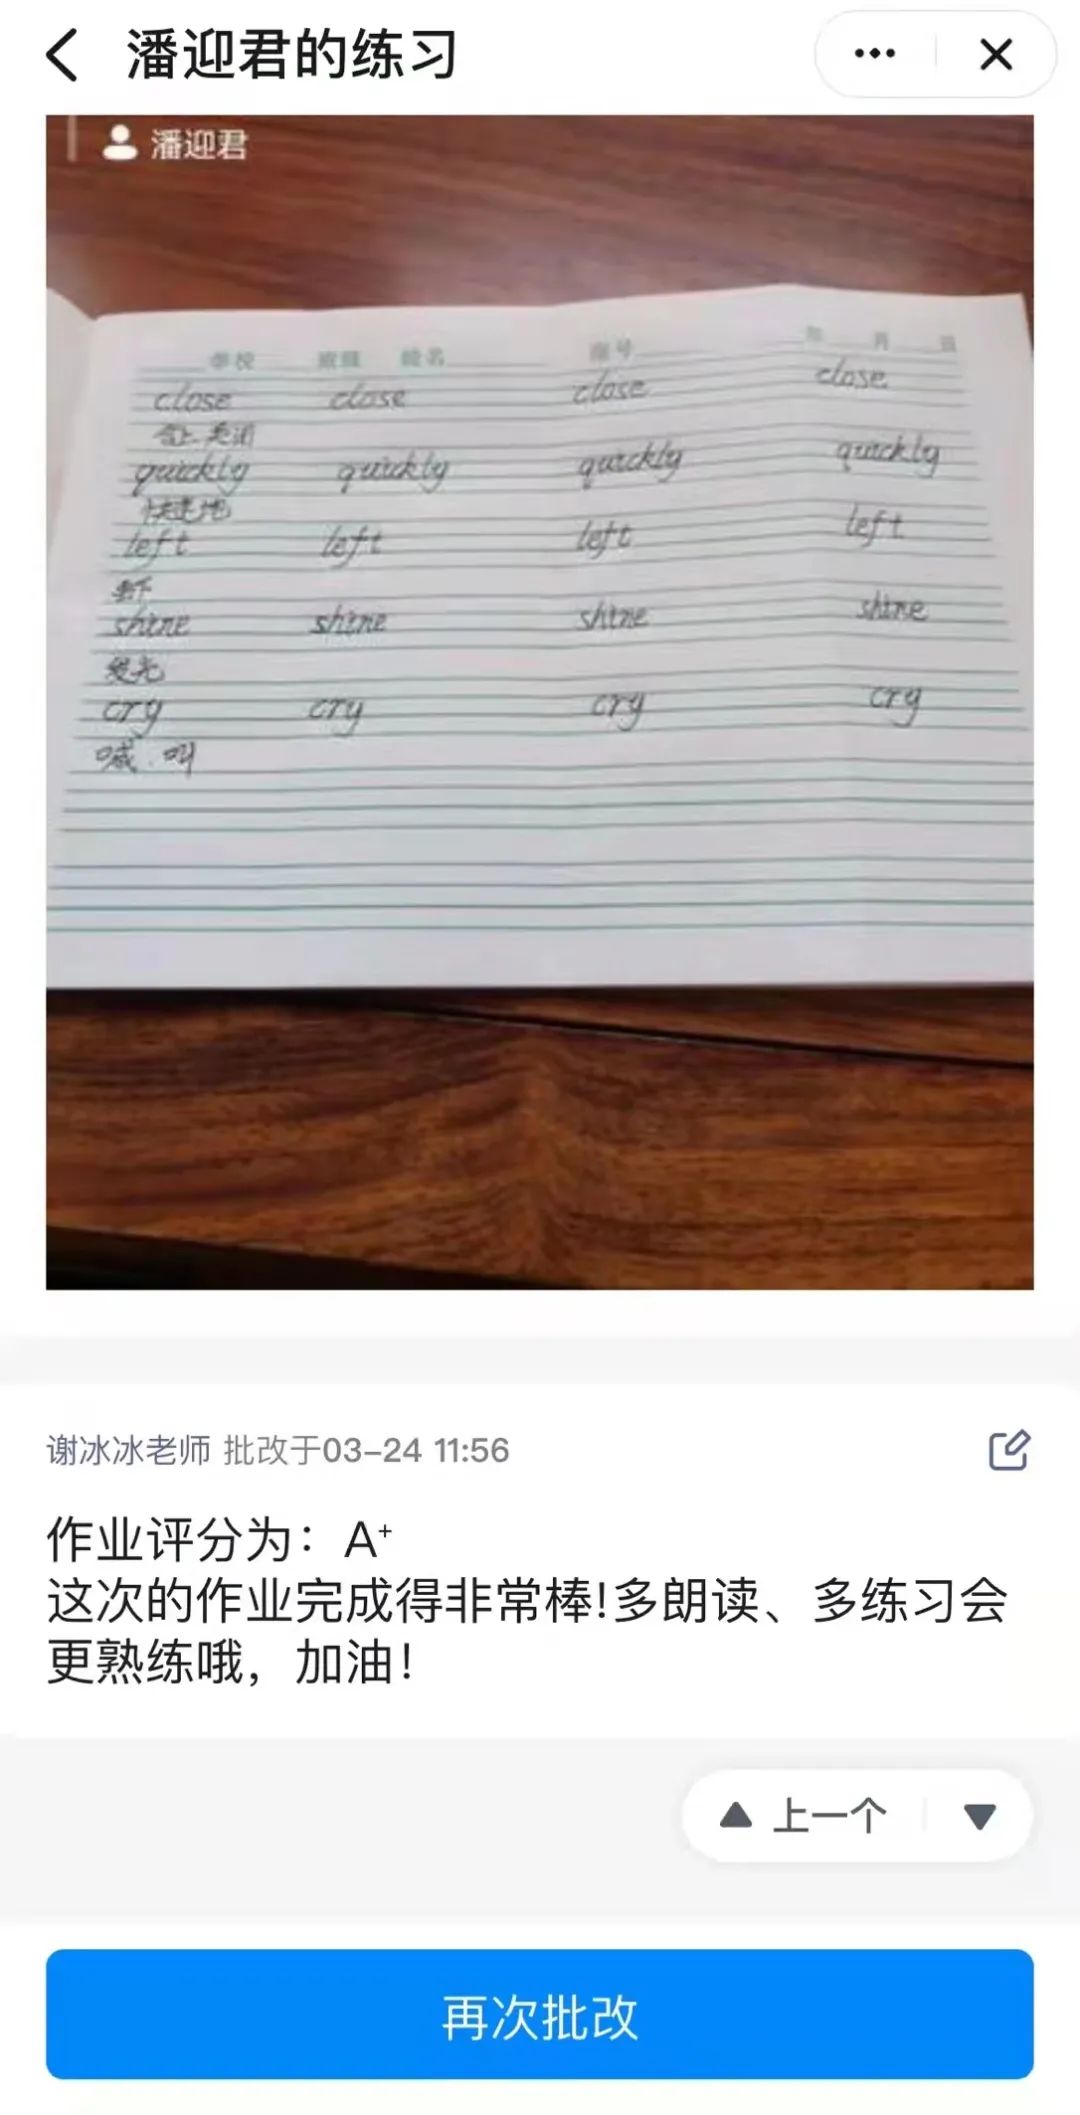 潘迎君的练习
潘迎君
学校 班级 姓名 座号 年 月 日
close close close close
合上.关闭
quickly quickly quickly quickly
快速地
left left left left
剩下
shine shine shine shine
发光
cry cry cry cry
喊.叫
谢冰冰老师 批改于03-24 11:56
作业评分为：A⁺
这次的作业完成得非常棒!多朗读、多练习会
更熟练哦，加油！
上一个
再次批改